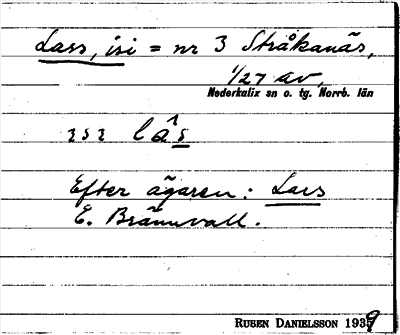 Lars, isi = nr 3 Stråkanäs,
1/27 av,
Nederkalix sn o. tg. Norrb. län
ısı lâs
Efter ägaren: Lars
E. Brännvall.
RUBEN DANIELSSON 1939